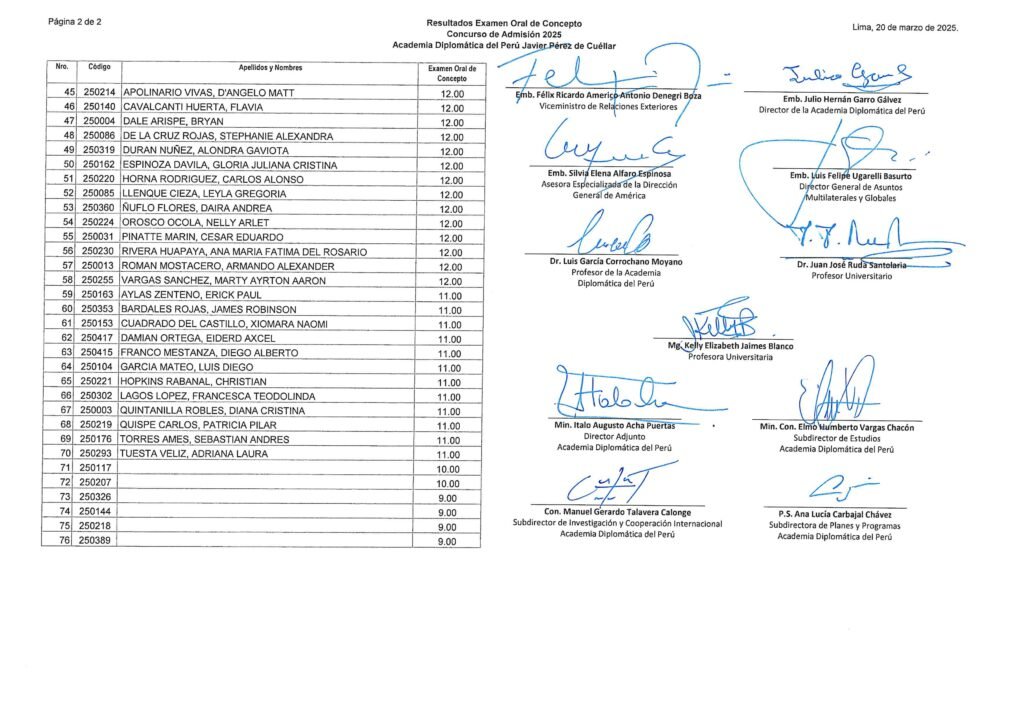 Página 2 de 2
Resultados Examen Oral de Concepto
Concurso de Admisión 2025
Academia Diplomática del Perú Javier Pérez de Cuéllar
Lima, 20 de marzo de 2025.
Nro. Código Apellidos y Nombres Examen Oral de Concepto
45 250214 APOLINARIO VIVAS, D'ANGELO MATT 12.00
46 250140 CAVALCANTI HUERTA, FLAVIA 12.00
47 250004 DALE ARISPE, BRYAN 12.00
48 250086 DE LA CRUZ ROJAS, STEPHANIE ALEXANDRA 12.00
49 250319 DURAN NUÑEZ, ALONDRA GAVIOTA 12.00
50 250162 ESPINOZA DAVILA, GLORIA JULIANA CRISTINA 12.00
51 250220 HORNA RODRIGUEZ, CARLOS ALONSO 12.00
52 250085 LLENQUE CIEZA, LEYLA GREGORIA 12.00
53 250360 ÑUFLO FLORES, DAIRA ANDREA 12.00
54 250224 OROSCO OCOLA, NELLY ARLET 12.00
55 250031 PINATTE MARIN, CESAR EDUARDO 12.00
56 250230 RIVERA HUAPAYA, ANA MARIA FATIMA DEL ROSARIO 12.00
57 250013 ROMAN MOSTACERO, ARMANDO ALEXANDER 12.00
58 250255 VARGAS SANCHEZ, MARTY AYRTON AARON 12.00
59 250163 AYLAS ZENTENO, ERICK PAUL 11.00
60 250353 BARDALES ROJAS, JAMES ROBINSON 11.00
61 250153 CUADRADO DEL CASTILLO, XIOMARA NAOMI 11.00
62 250417 DAMIAN ORTEGA, EIDERD AXCEL 11.00
63 250415 FRANCO MESTANZA, DIEGO ALBERTO 11.00
64 250104 GARCIA MATEO, LUIS DIEGO 11.00
65 250221 HOPKINS RABANAL, CHRISTIAN 11.00
66 250302 LAGOS LOPEZ, FRANCESCA TEODOLINDA 11.00
67 250003 QUINTANILLA ROBLES, DIANA CRISTINA 11.00
68 250219 QUISPE CARLOS, PATRICIA PILAR 11.00
69 250176 TORRES AMES, SEBASTIAN ANDRES 11.00
70 250293 TUESTA VELIZ, ADRIANA LAURA 11.00
71 250117 10.00
72 250207 10.00
73 250326 9.00
74 250144 9.00
75 250218 9.00
76 250389 9.00
Emb. Félix Ricardo Americo Antonio Denegri Boza
Viceministro de Relaciones Exteriores
Emb. Julio Hernán Garro Gálvez
Director de la Academia Diplomática del Perú
Emb. Silvia Elena Alfaro Espinosa
Asesora Especializada de la Dirección
General de América
Emb. Luis Felipe Ugarelli Basurto
Director General de Asuntos
Multilaterales y Globales
Dr. Luis García Corrochano Moyano
Profesor de la Academia
Diplomática del Perú
Dr. Juan José Ruda Santolaria
Profesor Universitario
Mg. Kelly Elizabeth Jaimes Blanco
Profesora Universitaria
Min. Italo Augusto Acha Puertas
Director Adjunto
Academia Diplomática del Perú
Min. Con. Elmo Humberto Vargas Chacón
Subdirector de Estudios
Academia Diplomática del Perú
Con. Manuel Gerardo Talavera Calonge
Subdirector de Investigación y Cooperación Internacional
Academia Diplomática del Perú
P.S. Ana Lucía Carbajal Chávez
Subdirectora de Planes y Programas
Academia Diplomática del Perú